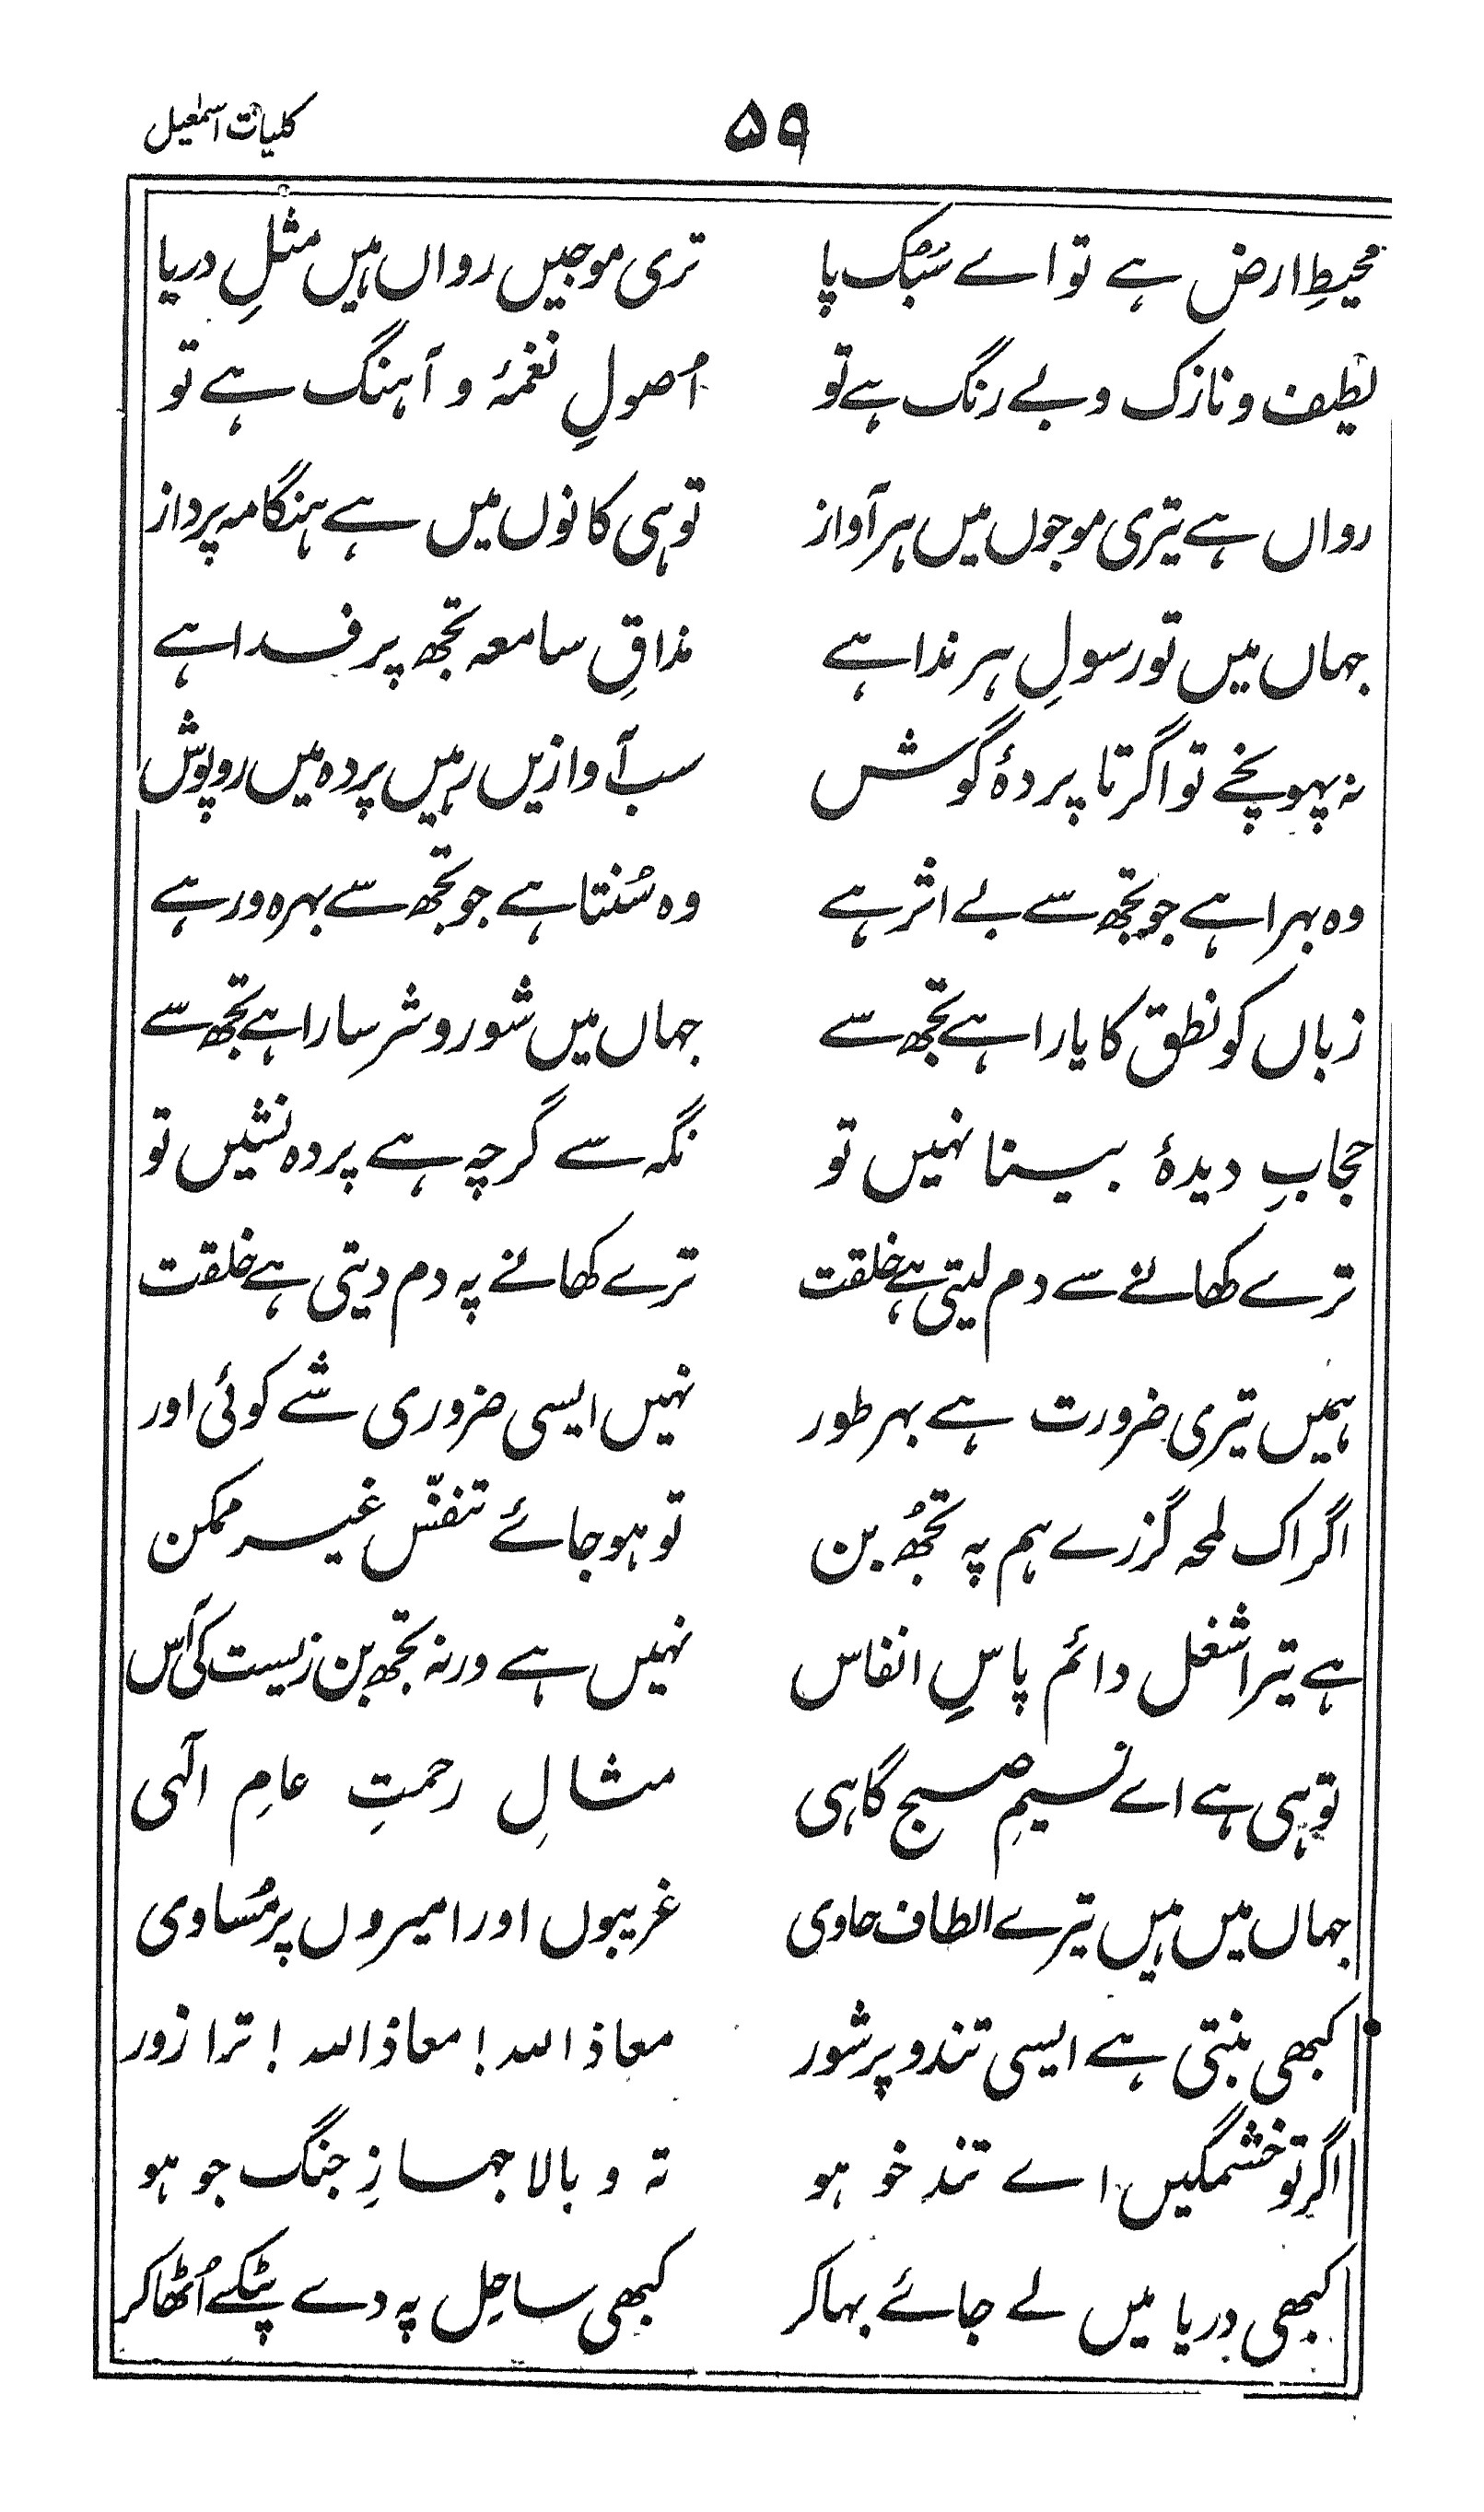 ۵۹ کلیات اسمٰعیل
محیطِ ارض ہے تو اے سُبک پا تری موجیں رواں ہیں مثلِ دریا
لطیف و نازک و بے رنگ ہے تو اُصولِ نغمۂ و آہنگ ہے تو
رواں ہے تیری موجوں میں ہر آواز تو ہی کانوں میں ہے ہنگامہ پرداز
جہاں میں تو رسولِ ہر ندا ہے مذاقِ سامعہ تجھ پر فدا ہے
نہ پہونچے تو اگر تا پردۂ گوش سب آوازیں رہیں پردہ میں روپوش
وہ بہرا ہے جو تجھ سے بے اثر ہے وہ سُنتا ہے جو تجھ سے بہرہ ور ہے
زباں کو نطق کا یارا ہے تجھ سے جہاں میں شور و شر سارا ہے تجھ سے
حجابِ دیدۂ بینا نہیں تو نگہ سے گرچہ ہے پردہ نشیں تو
ترے کھانے سے دم لیتی ہے خلقت ترے کھانے پہ دم دیتی ہے خلقت
ہمیں تیری ضرورت ہے بہر طور نہیں ایسی ضروری شے کوئی اور
اگر اک لمحہ گزرے ہم پہ تجھُ بن تو ہو جائے تنفّس غیر ممکن
ہے تیرا شغل دائم پاسِ انفاس نہیں ہے ورنہ تجھ بن زیست کی آس
تو ہی ہے اے نسیمِ صبح گاہی مثالِ رحمتِ عامِ الٰہی
جہاں میں ہیں تیرے الطاف حاوی غریبوں اور امیروں پر مُساوی
کبھی بنتی ہے ایسی تند و پر شور معاذ اللہ! معاذ اللہ! ترا زور
اگر تو خشمگیں اے تند خو ہو تہ و بالا جہازِ جنگ جو ہو
کبھی دریا میں لے جائے بہا کر کبھی ساحِل پہ دے پٹکے اُٹھا کر